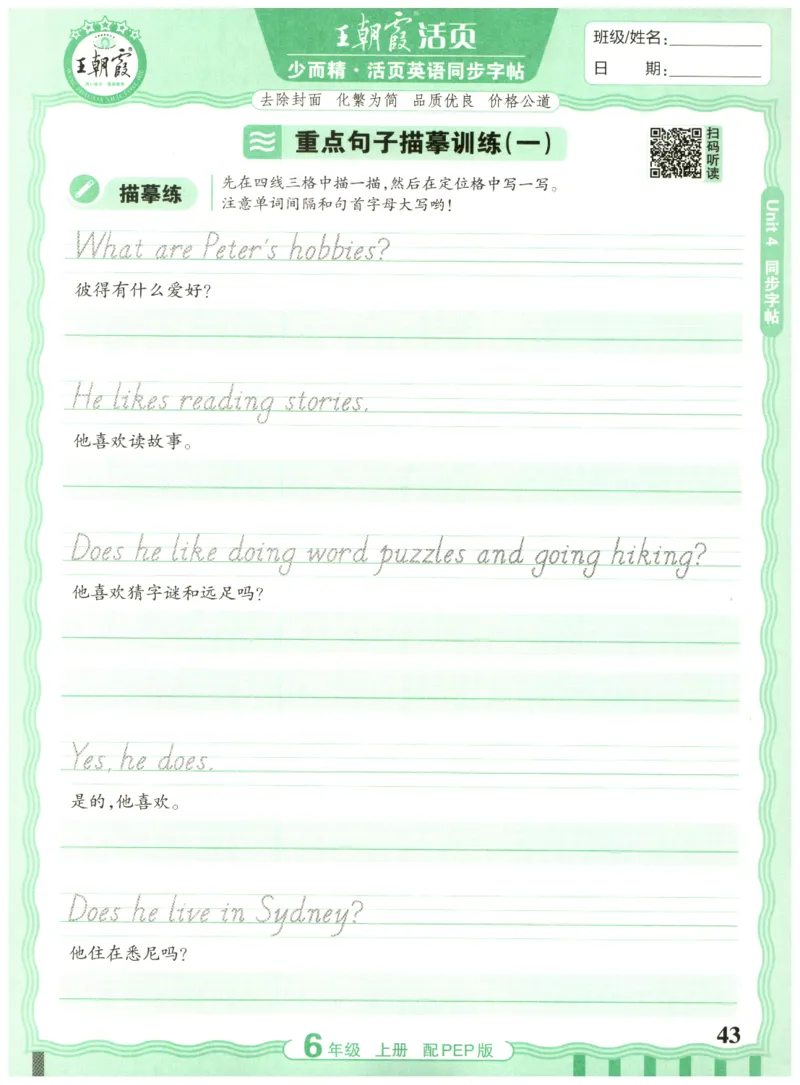 王朝霞®活页
王朝霞®
少而精·活页英语同步字帖
班级/姓名:
日 期:
去除封面 化繁为简 品质优良 价格公道
重点句子描摹训练(一)
扫码听读
描摹练
先在四线三格中描一描,然后在定位格中写一写。
注意单词间隔和句首字母大写哟!
Unit 4 同步字帖
What are Peter's hobbies?
彼得有什么爱好?
He likes reading stories.
他喜欢读故事。
Does he like doing word puzzles and going hiking?
他喜欢猜字谜和远足吗?
Yes, he does.
是的,他喜欢。
Does he live in Sydney?
他住在悉尼吗?
6年级 上册 配PEP版
43